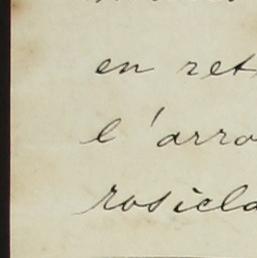 en ret
l'arro
rosicla